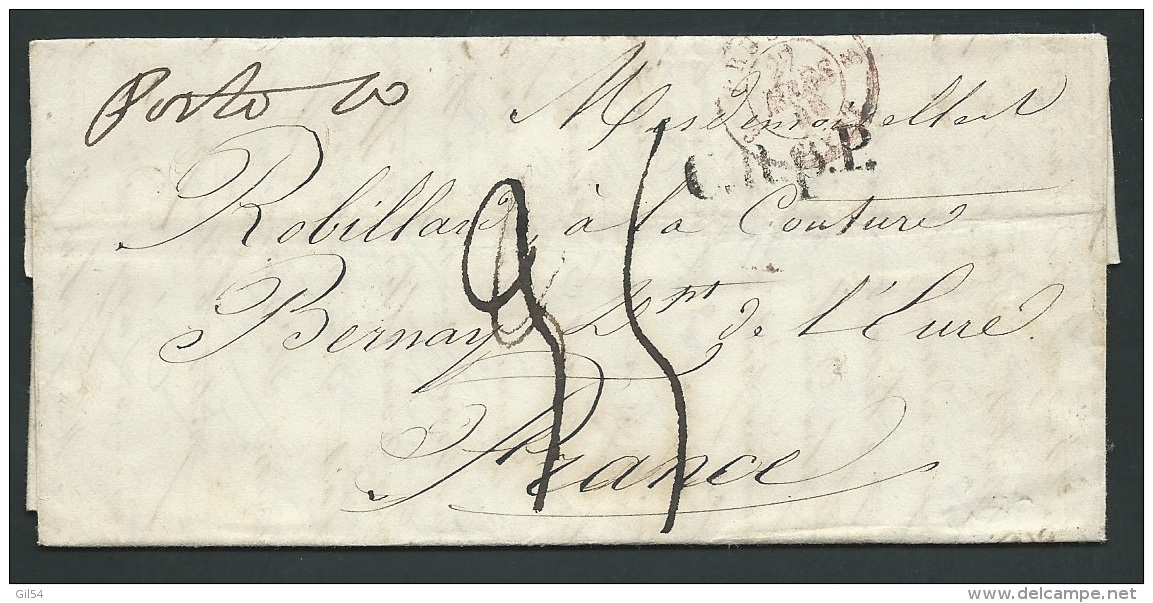 Porto
Mesdemoiselles
27
MARS
C.R.P.P.
Robillard, à la Couture
Bernay Dpt de l'Eure.
France
Gil54
delcampe.net